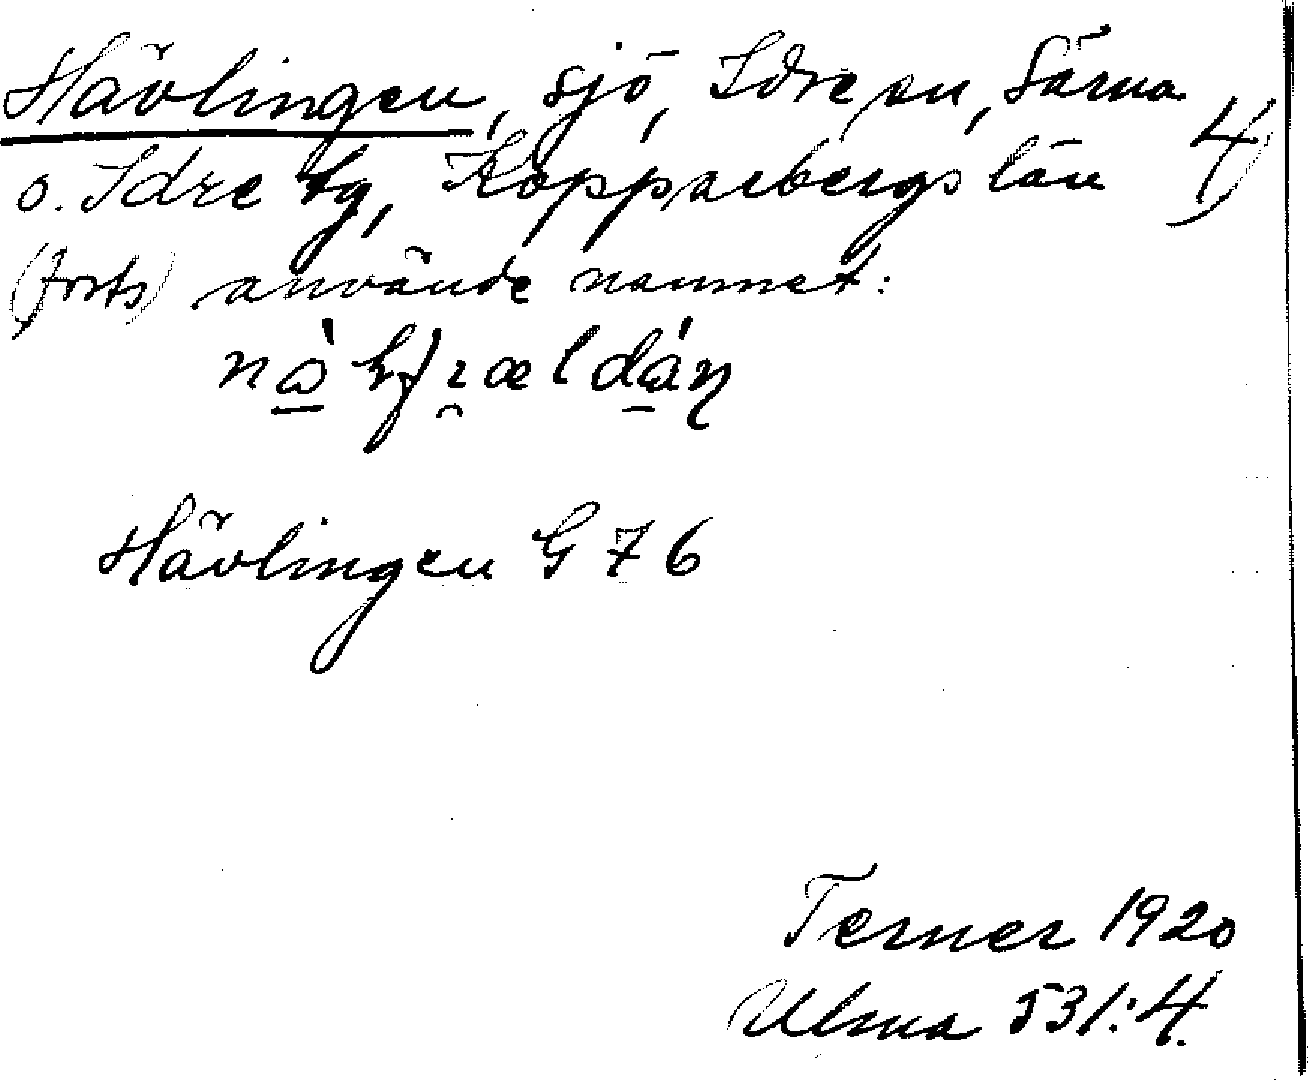 Hävlingen, sjö, Idre sn, Särna
o. Idre tg, Kopparbergs län 4)
(forts) använde namnet:
Hävlingen G 76
Terner 1920
Ulma 531:4.